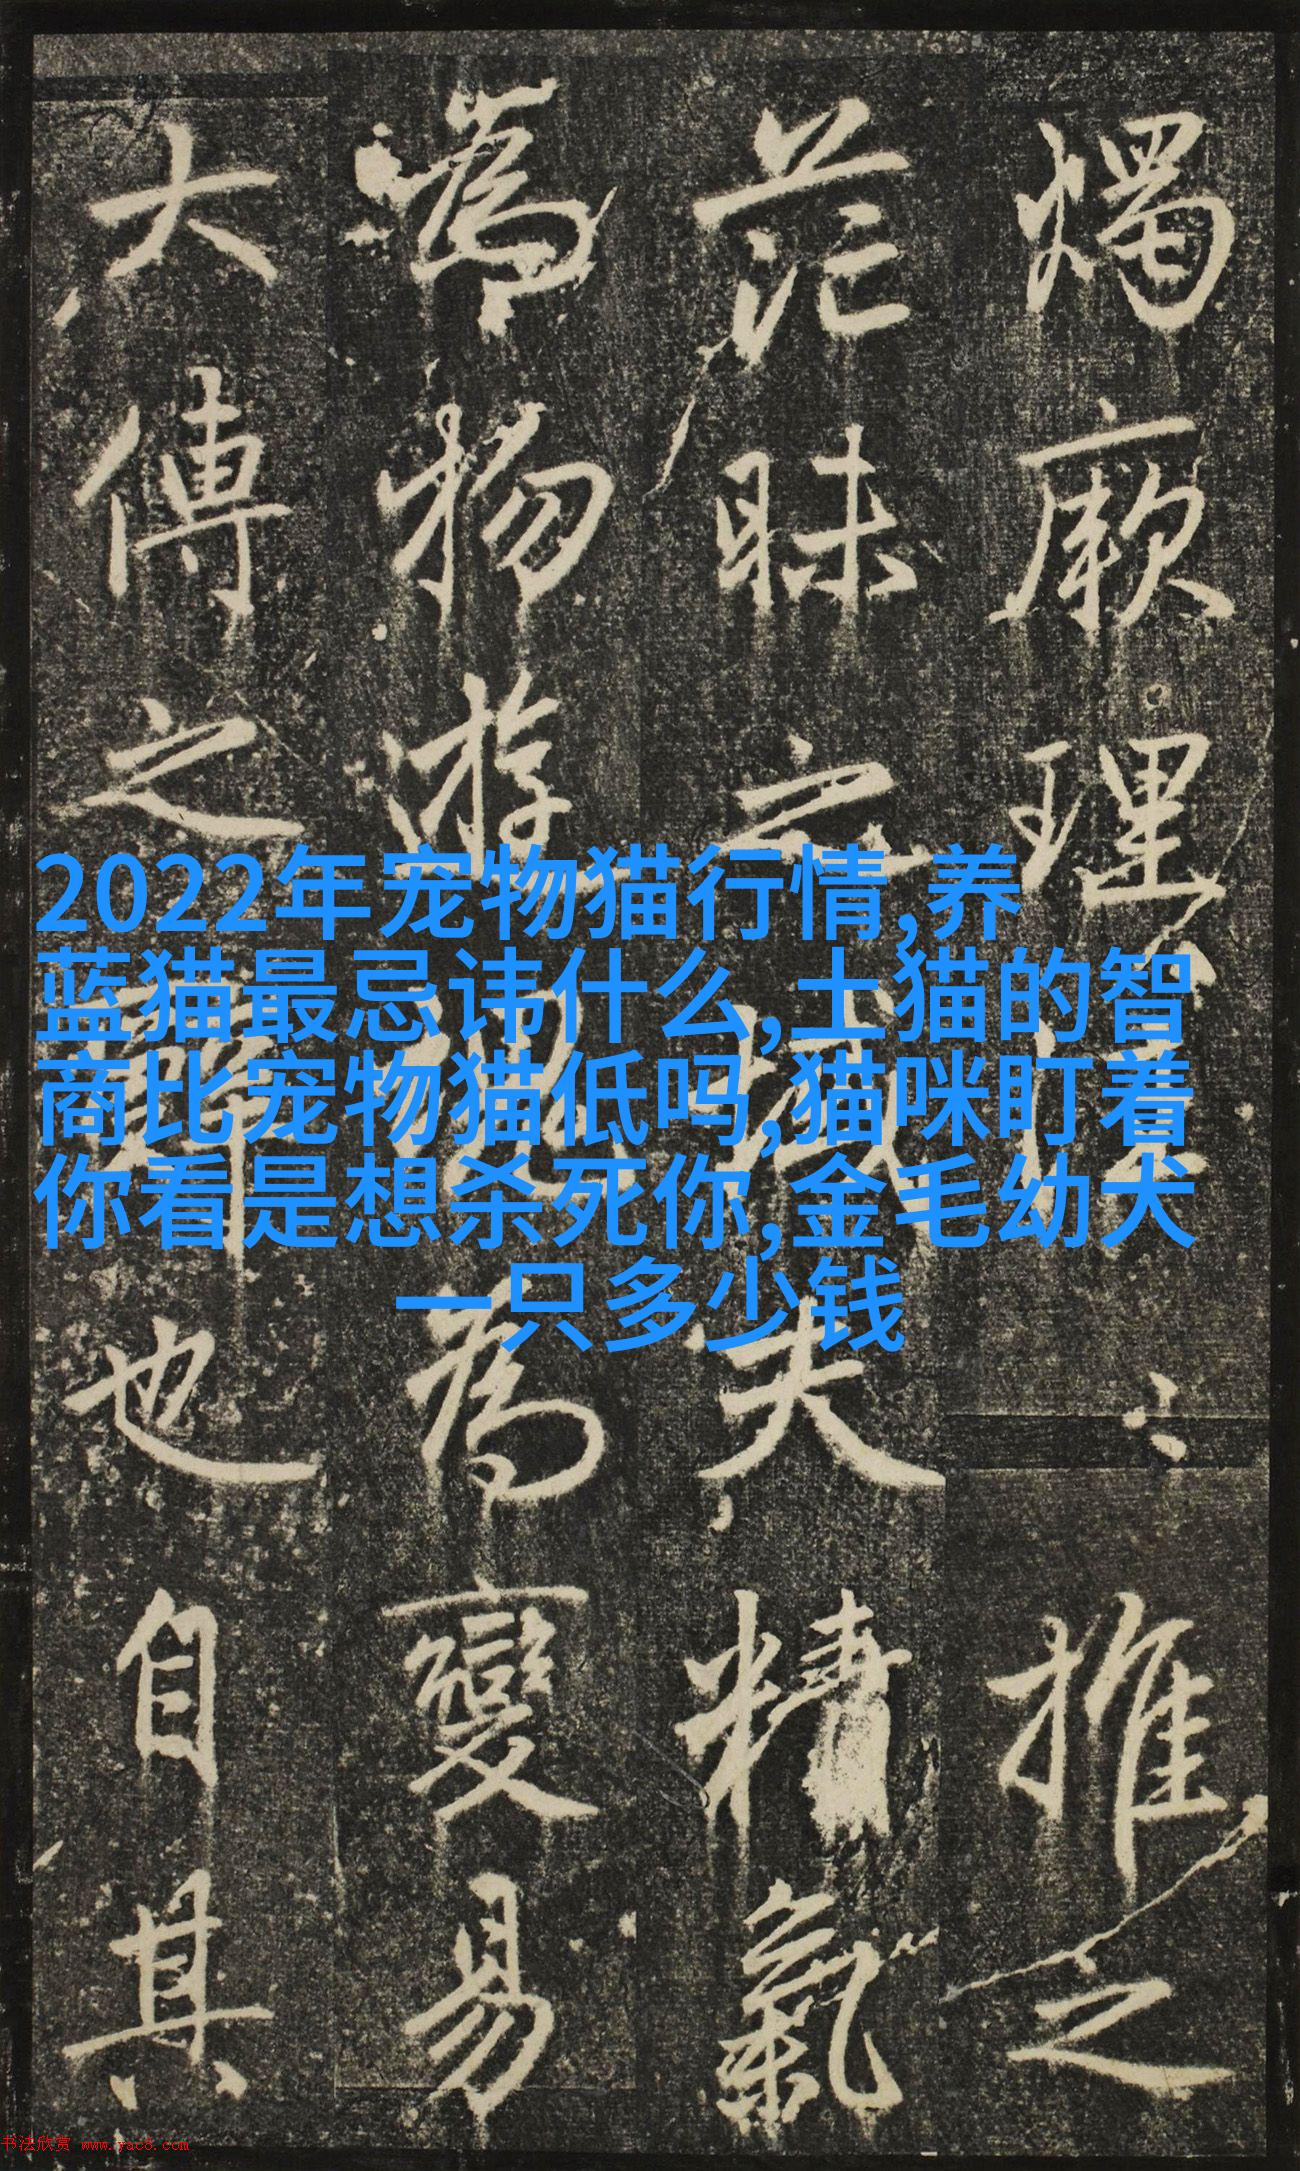 燭厥理
推之
茫昧
夫精氣
為物游
為變易
大傳之
也自其
2022年宠物猫行情,养
蓝猫最忌讳什么,土猫的智
商比宠物猫低吗,猫咪盯着
你看是想杀死你,金毛幼犬
一只多少钱
书法欣赏 www.yac8.com